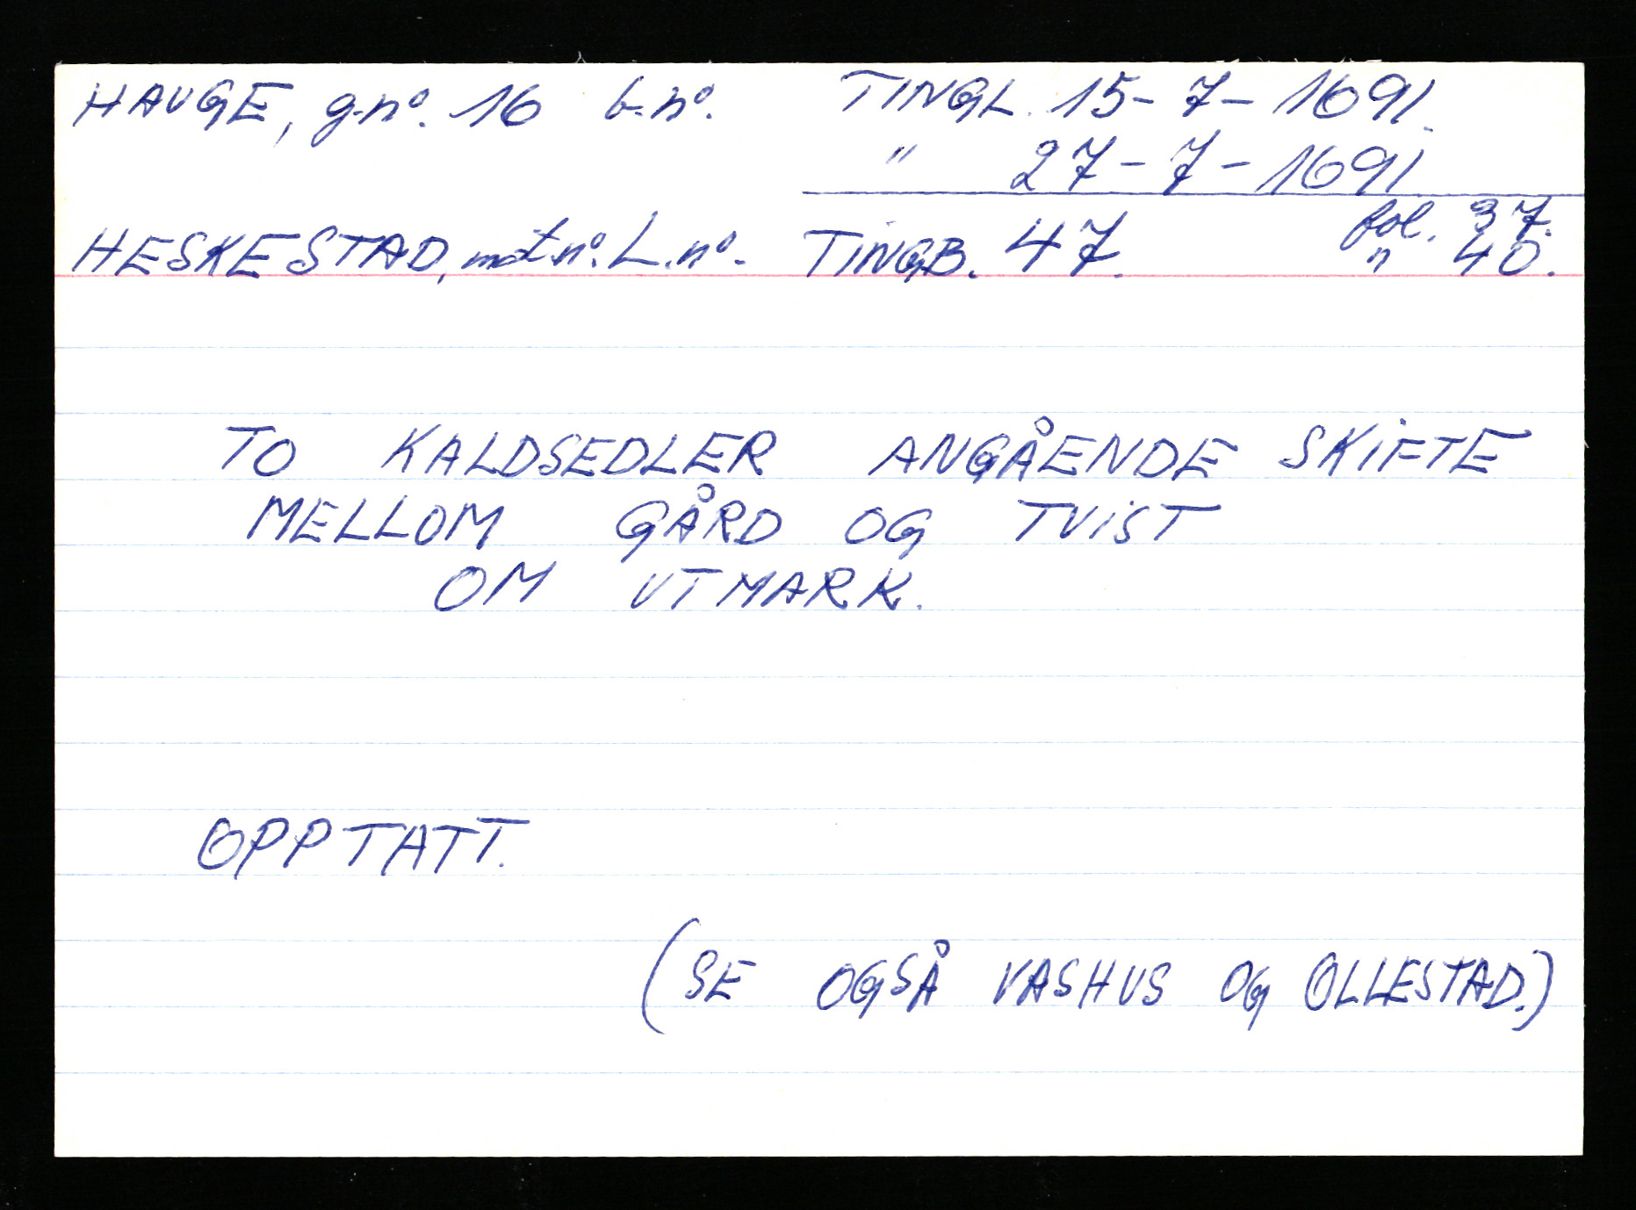 HAUGE, g.nº. 16 b.nº. TINGL. 15-7-1691.
" 27-7-1691
HESKESTAD, mat.nº. L.nº. TINGB. 47. fol. 37.
" 40.
TO KALDSEDLER ANGÅENDE SKIFTE
MELLOM GÅRD OG TVIST
OM UTMARK.
OPPTATT.
(SE OGSÅ VASHUS OG OLLESTAD.)